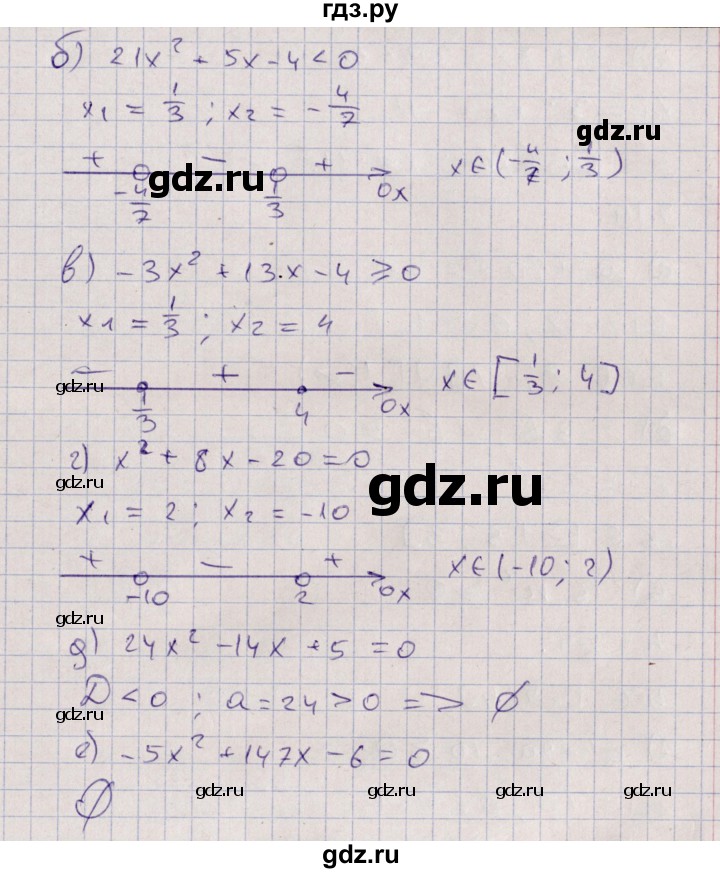 гдз.ру
б) 21x² + 5x - 4 < 0
x₁ = 1/3 ; x₂ = - 4/7
gdz.ru
+ - + x ∈ (- 4/7 ; 1/3)
gdz.ru
- 4/7 1/3 0x
в) - 3x² + 13.x - 4 ≥ 0
x₁ = 1/3 ; x₂ = 4
- + - x ∈ [1/3 ; 4]
1/3 4 0x
г) x² + 8x - 20 = 0
gdz.ru
gdz.ru
x₁ = 2 ; x₂ = -10
+ - + x ∈ (-10 ; 2)
-10 2 0x
gdz.ru
д) 24x² - 14x + 5 = 0
D < 0 ; a = 24 > 0 => ∅
gdz.ru
е) - 5x² + 147x - 6 = 0
∅
gdz.ru gdz.ru gdz.ru gdz.ru
gdz.ru